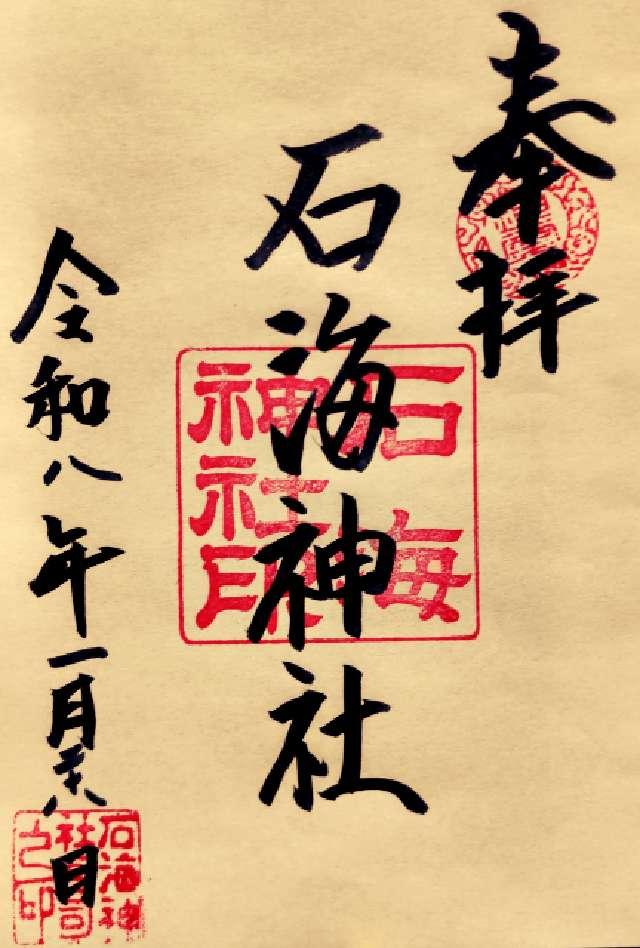 奉拝
石海神社
令和八年一月二十八日
石海
神社印
石海神
社宮司
之印